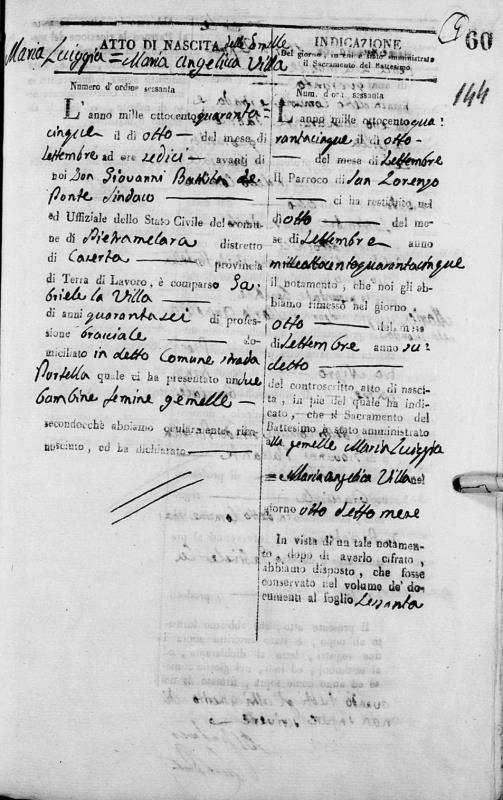 60
144
ATTO DI NASCITA delle Gemelle
Maria Luiggia = Maria Angelica Villa
Numero d'ordine sessanta
L'anno mille ottocento quaranta=
cinque il dì otto del mese di
Settembre ad ore sedici avanti di
noi Don Giovanni Battista de
Ponte Sindaco
ed Uffiziale dello Stato Civile del comu-
ne di Pietramelara distretto
di Caserta provincia
di Terra di Lavoro, è comparso Ga=
briele la Villa
di anni quarantasei di profes-
sione bracciale do-
miciliato in detto Comune strada
Portella quale ci ha presentato un due
bambine femine gemelle
secondocchè abbiamo ocularmente rico-
nosciuto, ed ha dichiarato
INDICAZIONE
Del giorno, in cui è stato amministrato
il Sacramento del Battesimo
Num. d'ord. sessanta
L'anno mille ottocento qua=
rantacinque il dì otto
del mese di Settembre
Il Parroco di San Lorenzo
ci ha restituito nel
dì otto del me-
se di Settembre anno
milleottocentoquarantacinque
il notamento, che noi gli ab-
biamo rimesso nel giorno
otto del mese
di Settembre anno su=
detto
del controscritto atto di nasci-
ta, in piè del quale ha indi-
cato, che il Sacramento del
Battesimo è stato amministrato
alle gemelle Maria Luiggia
= Maria Angelica Villa nel
giorno otto detto mese
In vista di un tale notamen-
to, dopo di averlo cifrato,
abbiamo disposto, che fosse
conservato nel volume de' do-
cumenti al foglio Sessanta